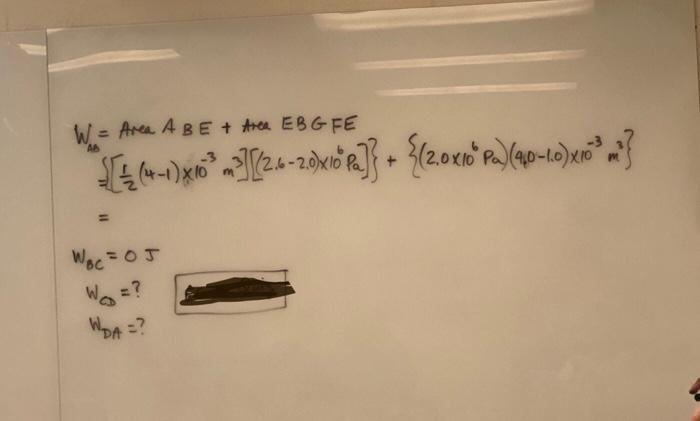 W_AB = Area ABE + Area EBGFE
= {[½(4-1)×10⁻³ m³][(2.6-2.0)×10⁶ Pa]} + {(2.0×10⁶ Pa)(4.0-1.0)×10⁻³ m³}
=
W_BC = 0 J
W_CD = ?
W_DA = ?